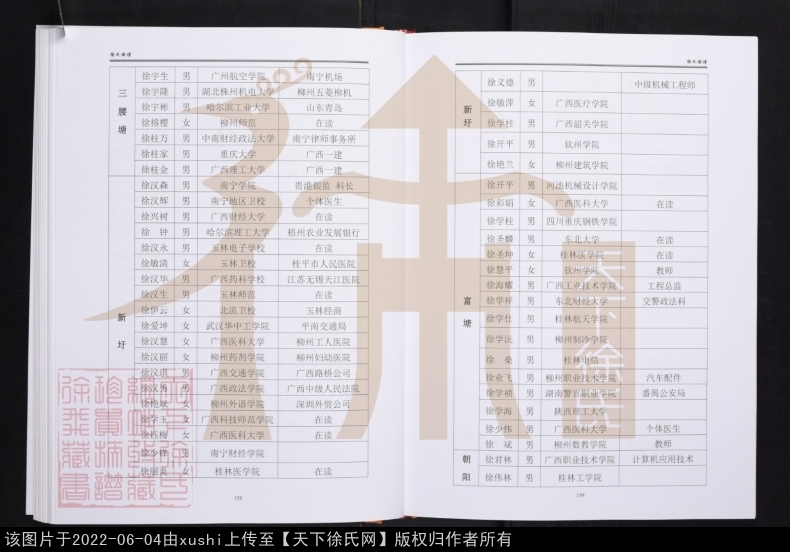 徐氏族谱
三腰塘
徐宇生 男 广州航空学院 南宁机场
徐宇隆 男 湖北株州机电大学 柳州五菱柳机
徐宇彬 男 哈尔滨工业大学 山东青岛
徐榕樱 女 柳州师范 在读
徐桂万 男 中南财经政法大学 南宁律师事务所
徐桂家 男 重庆大学 广西一建
徐桂金 男 广西理工大学 广西一建
新圩
徐汉森 男 南宁学院 贵港银监 科长
徐汉辉 男 南宁地区卫校 个体医生
徐兴树 男 广西财经大学 在读
徐 钟 男 哈尔滨理工大学 梧州农业发展银行
徐汉永 男 玉林电子学校 在读
徐敏清 女 玉林卫校 桂平市人民医院
徐汉华 男 广西药科学校 江苏无锡天江医院
徐汉生 男 玉林师范 在读
徐伊云 女 北流卫校 玉林经商
徐爱坤 女 武汉华中工学院 平南交通局
徐汉慧 女 广西医科大学 柳州工人医院
徐汉丽 女 柳州药剂学院 柳州妇幼医院
徐汉琪 男 广西交通学院 广西路桥公司
徐汉勇 男 广西政法学院 广西中级人民法院
徐艳斌 女 柳州外语学院 深圳外贸公司
徐学玉 女 广西科技师范学院 在读
徐钰梅 女 广西医科大学 在读
徐少锋 男 南宁财经学院
徐丽英 女 桂林医学院 在读
158
徐氏族谱
新圩
徐义德 男 中级机械工程师
徐敏萍 女 广西医疗学院
徐学桂 男 广西韶关学院
徐开平 男 钦州学院
徐艳兰 女 柳州建筑学院
富塘
徐开平 男 河池机械设计学院
徐彩娟 女 广西医科大学 在读
徐学柱 男 四川重庆钢铁学院
徐圣麟 男 东北大学 在读
徐圣坤 女 桂林医学院 在读
徐慧平 女 钦州学院 教师
徐海耀 男 广西工业技术学院 工程总监
徐学祥 男 东北财经大学 交警政法科
徐学仕 男 桂林航天学院
徐学沅 男 柳州制冷学院
徐 燊 男 桂林电信
徐业飞 男 柳州职业技术学院 汽车配件
徐学祯 男 湖南警官职业学院 番禺公安局
徐学海 男 陕西理工大学
徐少伟 男 广西医科大学 个体医生
徐 斌 男 柳州数教学院 教师
朝阳
徐君林 男 广西职业技术学院 计算机应用技术
徐伟林 男 桂林工学院
159
该图片于2022-06-04由xushi上传至【天下徐氏网】版权归作者所有